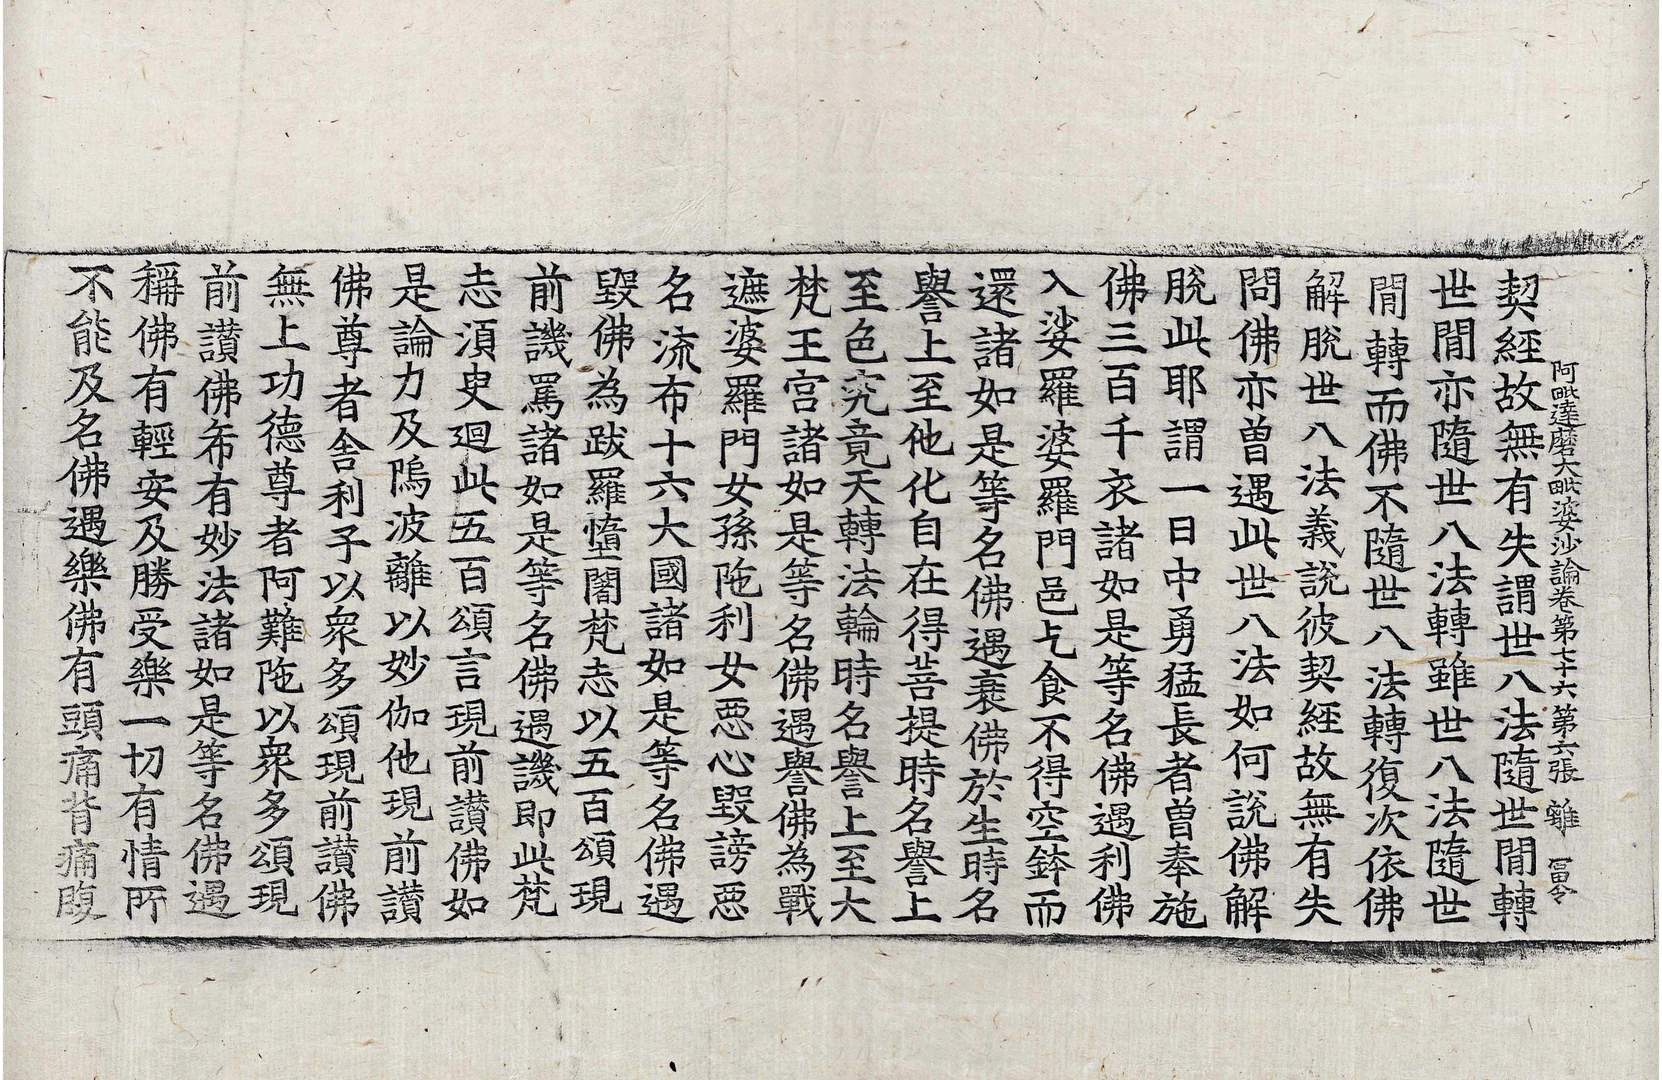 阿毗達磨大毗婆沙論卷第七十六第六張 雖 冨令
契經故無有失謂世八法隨世間轉
世間亦隨世八法轉雖世八法隨世
間轉而佛不隨世八法轉復次依佛
解脫世八法義說彼契經故無有失
問佛亦曾遇此世八法如何說佛解
脫此耶謂一日中勇猛長者曾奉施
佛三百千衣諸如是等名佛遇利佛
入娑羅婆羅門邑乞食不得空鉢而
還諸如是等名佛遇衰佛於生時名
譽上至他化自在得菩提時名譽上
至色究竟天轉法輪時名譽上至大
梵王宮諸如是等名佛遇譽佛為戰
遮婆羅門女孫陁利女惡心毀謗惡
名流布十六大國諸如是等名佛遇
毀佛為跋羅墮闍梵志以五百頌現
前譏罵諸如是等名佛遇譏即此梵
志湏臾迴此五百頌言現前讚佛如
是論力及鄔波離以妙伽他現前讚
佛尊者舍利子以衆多頌現前讚佛
無上功德尊者阿難陁以衆多頌現
前讚佛希有妙法諸如是等名佛遇
稱佛有輕安及勝受樂一切有情所
不能及名佛遇樂佛有頭痛背痛腹